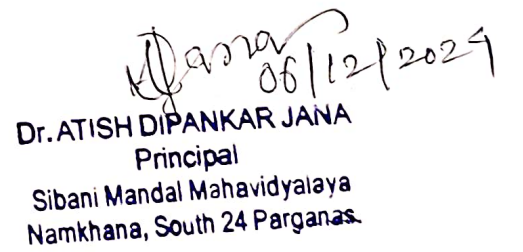 Jana
06/12/2024
Dr. ATISH DIPANKAR JANA
Principal
Sibani Mandal Mahavidyalaya
Namkhana, South 24 Parganas.